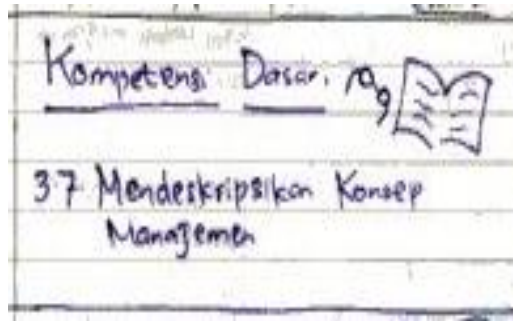 Kompetensi Dasar.
3.7 Mendeskripsikan Konsep
Manajemen